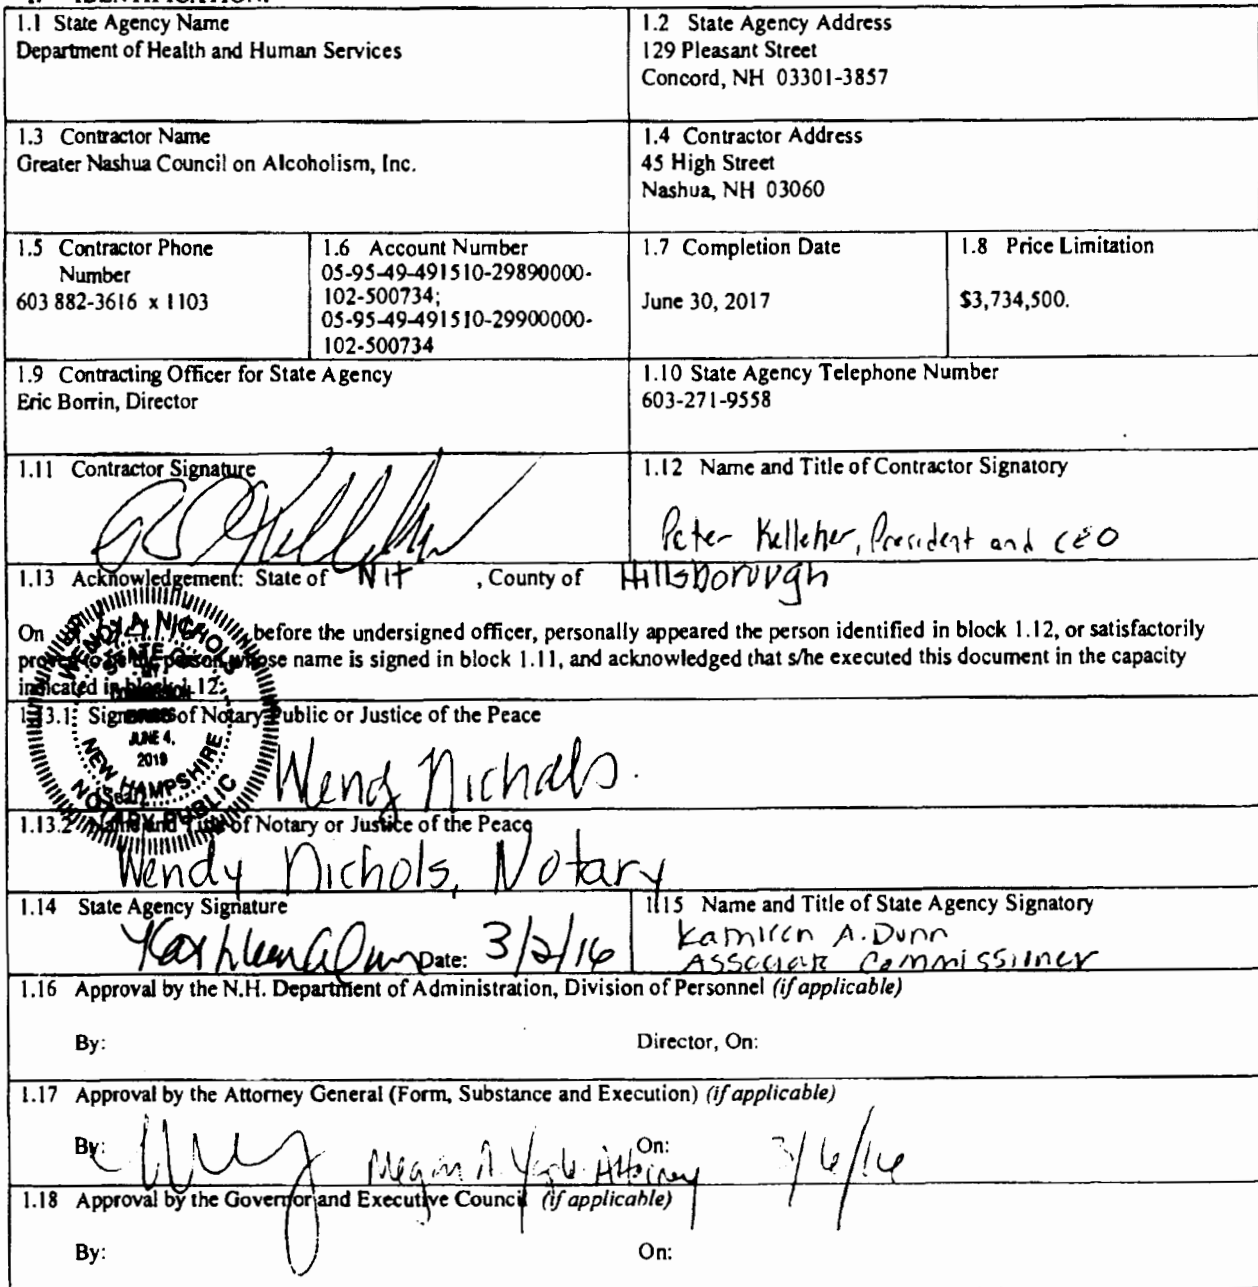 1.1 State Agency Name
Department of Health and Human Services
1.2 State Agency Address
129 Pleasant Street
Concord, NH 03301-3857
1.3 Contractor Name
Greater Nashua Council on Alcoholism, Inc.
1.4 Contractor Address
45 High Street
Nashua, NH 03060
1.5 Contractor Phone
Number
603 882-3616 x 1103
1.6 Account Number
05-95-49-491510-29890000-
102-500734;
05-95-49-491510-29900000-
102-500734
1.7 Completion Date
June 30, 2017
1.8 Price Limitation
$3,734,500.
1.9 Contracting Officer for State Agency
Eric Borrin, Director
1.10 State Agency Telephone Number
603-271-9558
1.11 Contractor Signature
1.12 Name and Title of Contractor Signatory
Peter Kelleher, President and CEO
1.13 Acknowledgement: State of NH , County of Hillsborough
On before the undersigned officer, personally appeared the person identified in block 1.12, or satisfactorily
proven to be the person whose name is signed in block 1.11, and acknowledged that s/he executed this document in the capacity
indicated in block 1.12.
WENDY A. NICHOLS
STATE OF
MY
COMMISSION
EXPIRES
JUNE 4,
2019
NEW HAMPSHIRE
NOTARY PUBLIC
1.13.1 Signature of Notary Public or Justice of the Peace
[Seal]
Wendy Nichols
1.13.2 Name and Title of Notary or Justice of the Peace
Wendy Nichols, Notary
1.14 State Agency Signature
Date: 3/2/16
1.15 Name and Title of State Agency Signatory
A. Dunn
Associate Commissioner
1.16 Approval by the N.H. Department of Administration, Division of Personnel (if applicable)
By: Director, On:
1.17 Approval by the Attorney General (Form, Substance and Execution) (if applicable)
By: Megan A. Attorney On: 3/6/16
1.18 Approval by the Governor and Executive Council (if applicable)
By: On: